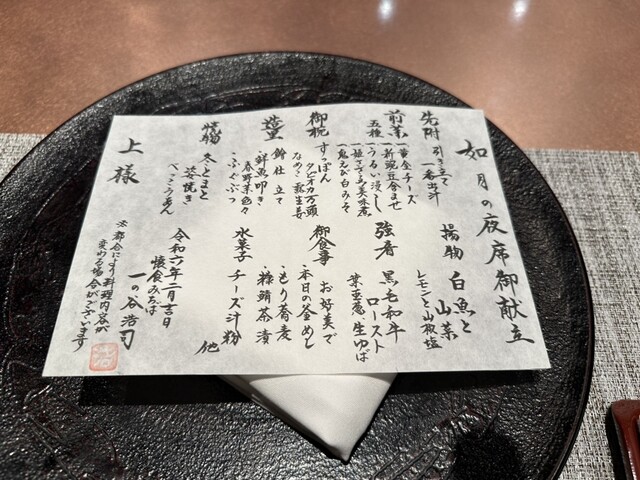 如月の夜席御献立
先附
引き立て
一番出汁
前菜
五種
一黄金チーズ
一新豌豆合ませ
一うるい浸し
一姫さざえ美味煮
一鬼えび白みそ
御椀
すっぽん
タピオカ万頭
なめこ 露生姜
造里
鉾仕立て
・鮮魚叩き
春野菜色々
・ふぐぶつ
焼物
冬とまと
姿焼き
べっこうあん
揚物
白魚と
山菜
レモンと山椒塩
強肴
黒毛和牛
ロースト
葉玉葱 生ゆば
御食事
お好美で
・本日の釜めし
・もり蕎麦
・糠鯖茶漬
水菓子
チーズ汁粉
他
令和六年二月吉日
懐食みちば
一の谷浩司
上様
※都合により料理内容が
変わる場合がございます